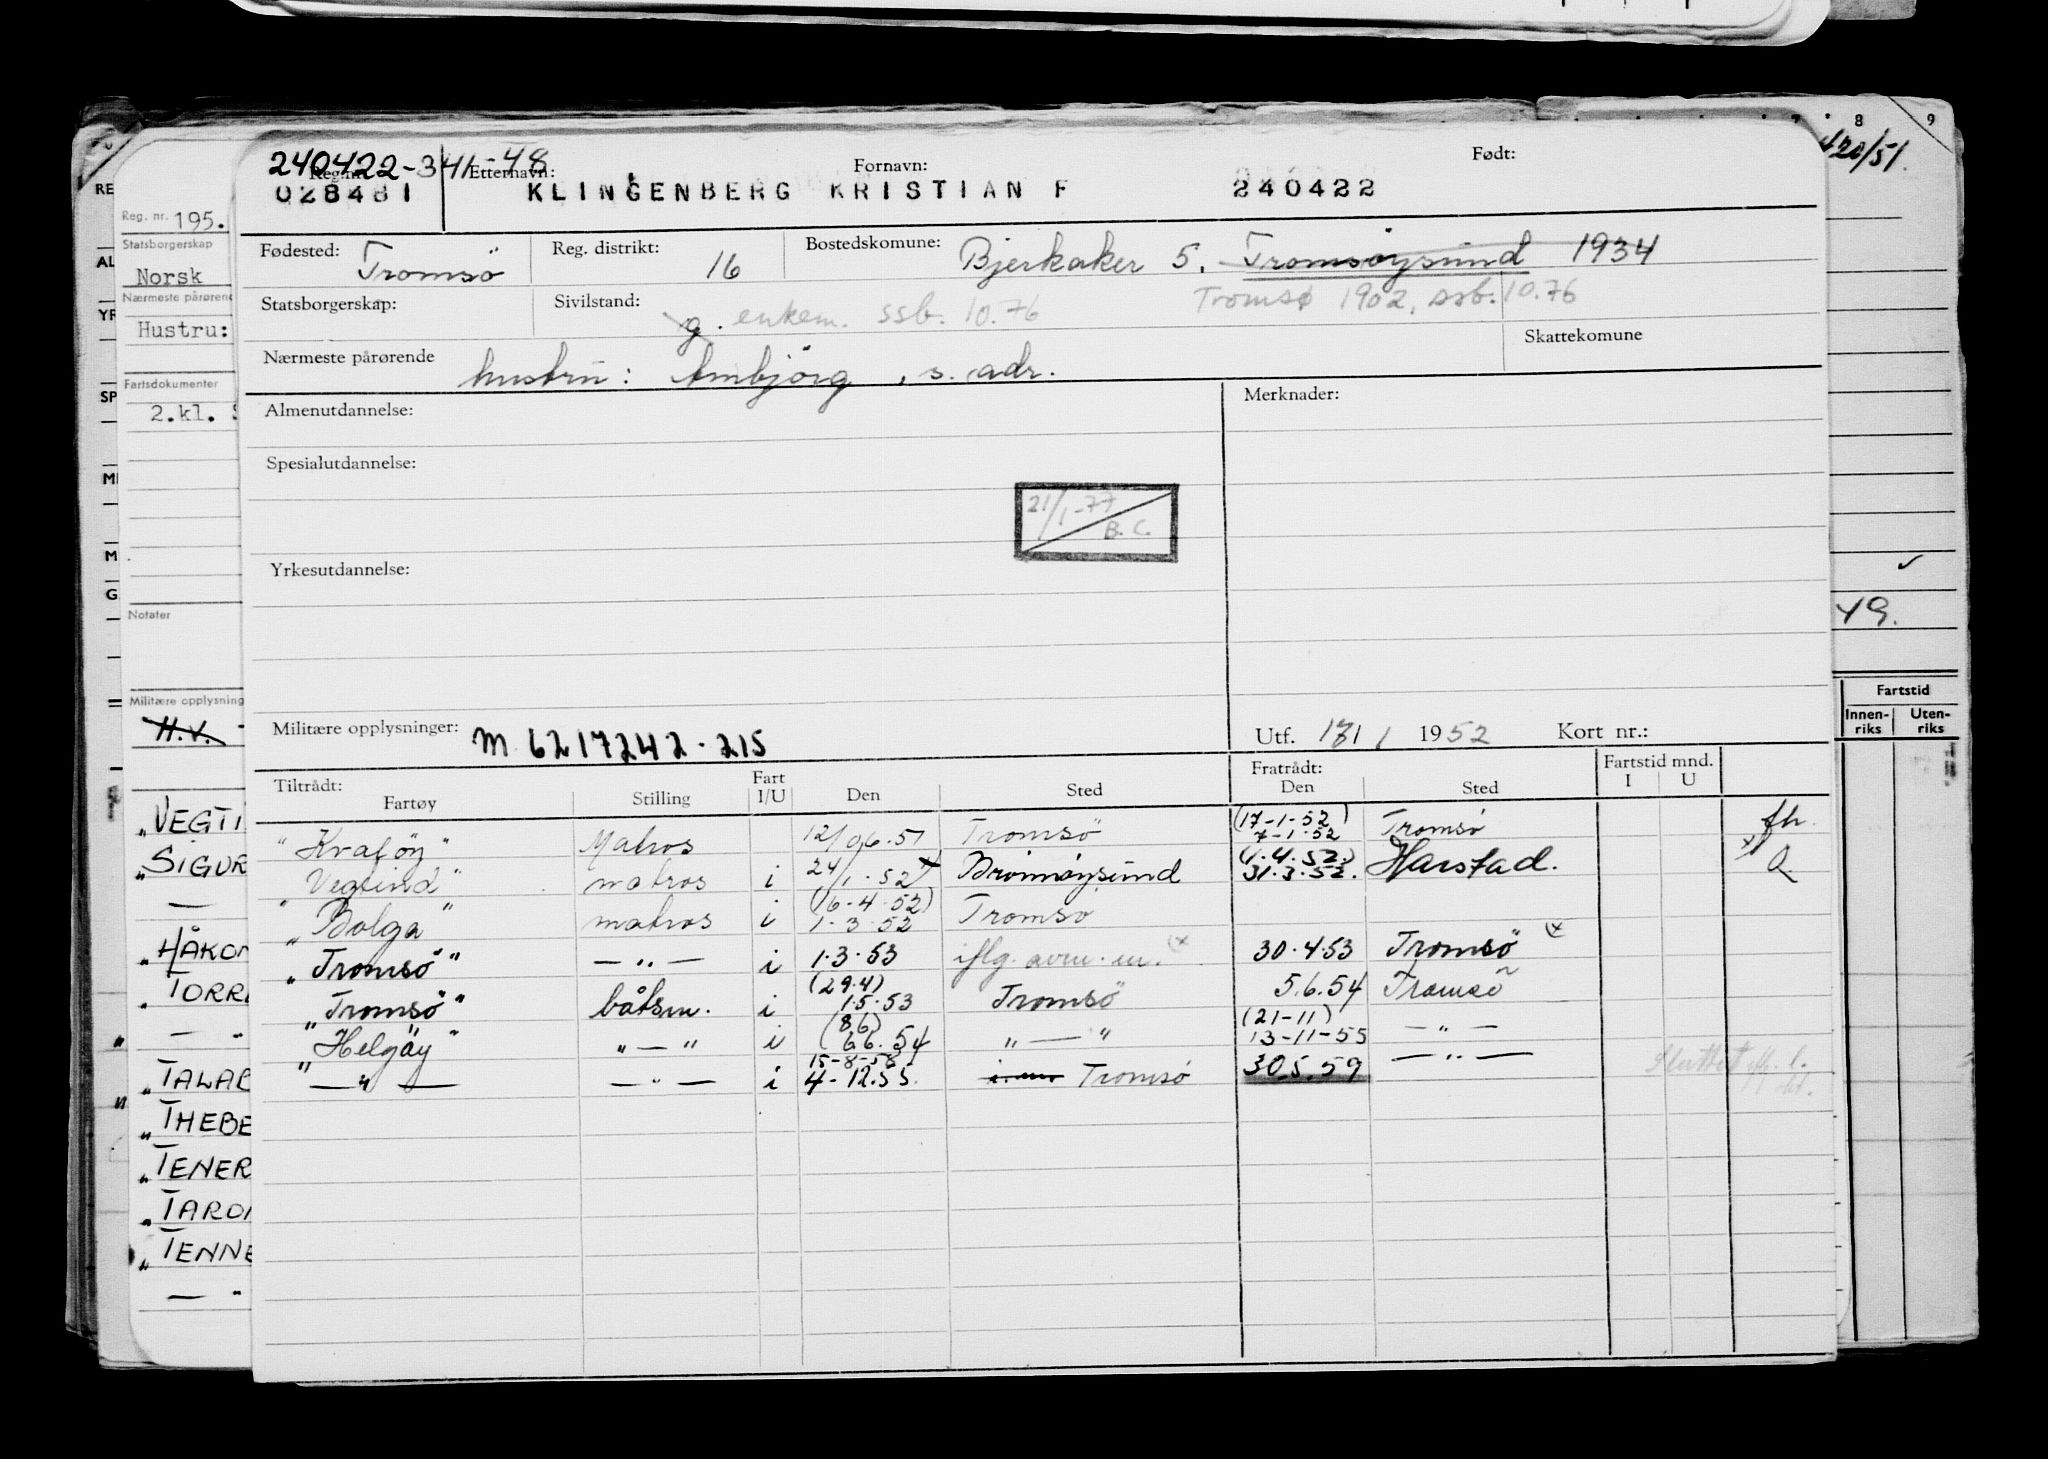 240422-341-48
Reg.nr. Etternavn: Fornavn: Født:
028481 KLINGENBERG KRISTIAN F 240422
Fødested: Tromsö Reg. distrikt: 16 Bostedskomune: Bjerkaker 5. Tromsöysund 1934
Statsborgerskap: Sivilstand: g. enkem. ssb. 10.76 Tromsø 1902, ssb. 10.76
Nærmeste pårørende hustru: Ambjörg, s. adr. Skattekomune
Almenutdannelse: Merknader:
Spesialutdannelse:
21/1-77 B. C.
Yrkesutdannelse:
Militære opplysninger: M 6217242-215 Utf. 1952 Kort nr.:
Tiltrådt: Fart Fratrådt: Fartstid mnd.
Fartøy Stilling I/U Den Sted Den Sted I U
"Kraföy" Matros 12/06.51 Tromsö (17-1-52) 7-1-52 Tromsö fh.
"Vegtind" matros i 24/1.52 x Brönnöysund (1.4.52.) 31.3.52. Harstad. x
"Bolga" matros i (16-4-52) 1.3.52 Tromsö
"Tromsö" — „ — i 1.3.53 iflg. avm. (x 30.4.53 Tromsö (x
"Tromsö" båtsm. i (29.4) 1.5.53 Tromsö 5.6.54 Tromsö
"Helgöy" „ — „ i (8.6) 6.6.54 „ — „ (21-11) 13-11-55 — „ —
— „ — — „ — i 15-8-58 4-12.55. Tromsö 30.5.59 — „ — Sluttet
RE
AL
YR
SP
M
G
Reg. nr. 195.
Statsborgerskap
Norsk
Nærmeste pårørende
Hustru:
Fartsdokumenter
2.kl. S
Notater
Militære opplysning
H.V.
„VEGTI
„SIGUR
— „
„HÅKON
„TORR
— „
„TALAB
„THEBE
„TENER
„TARON
„TENNE
— „
7 8 9
420/51.
49.
Fartstid
Innenriks Utenriks